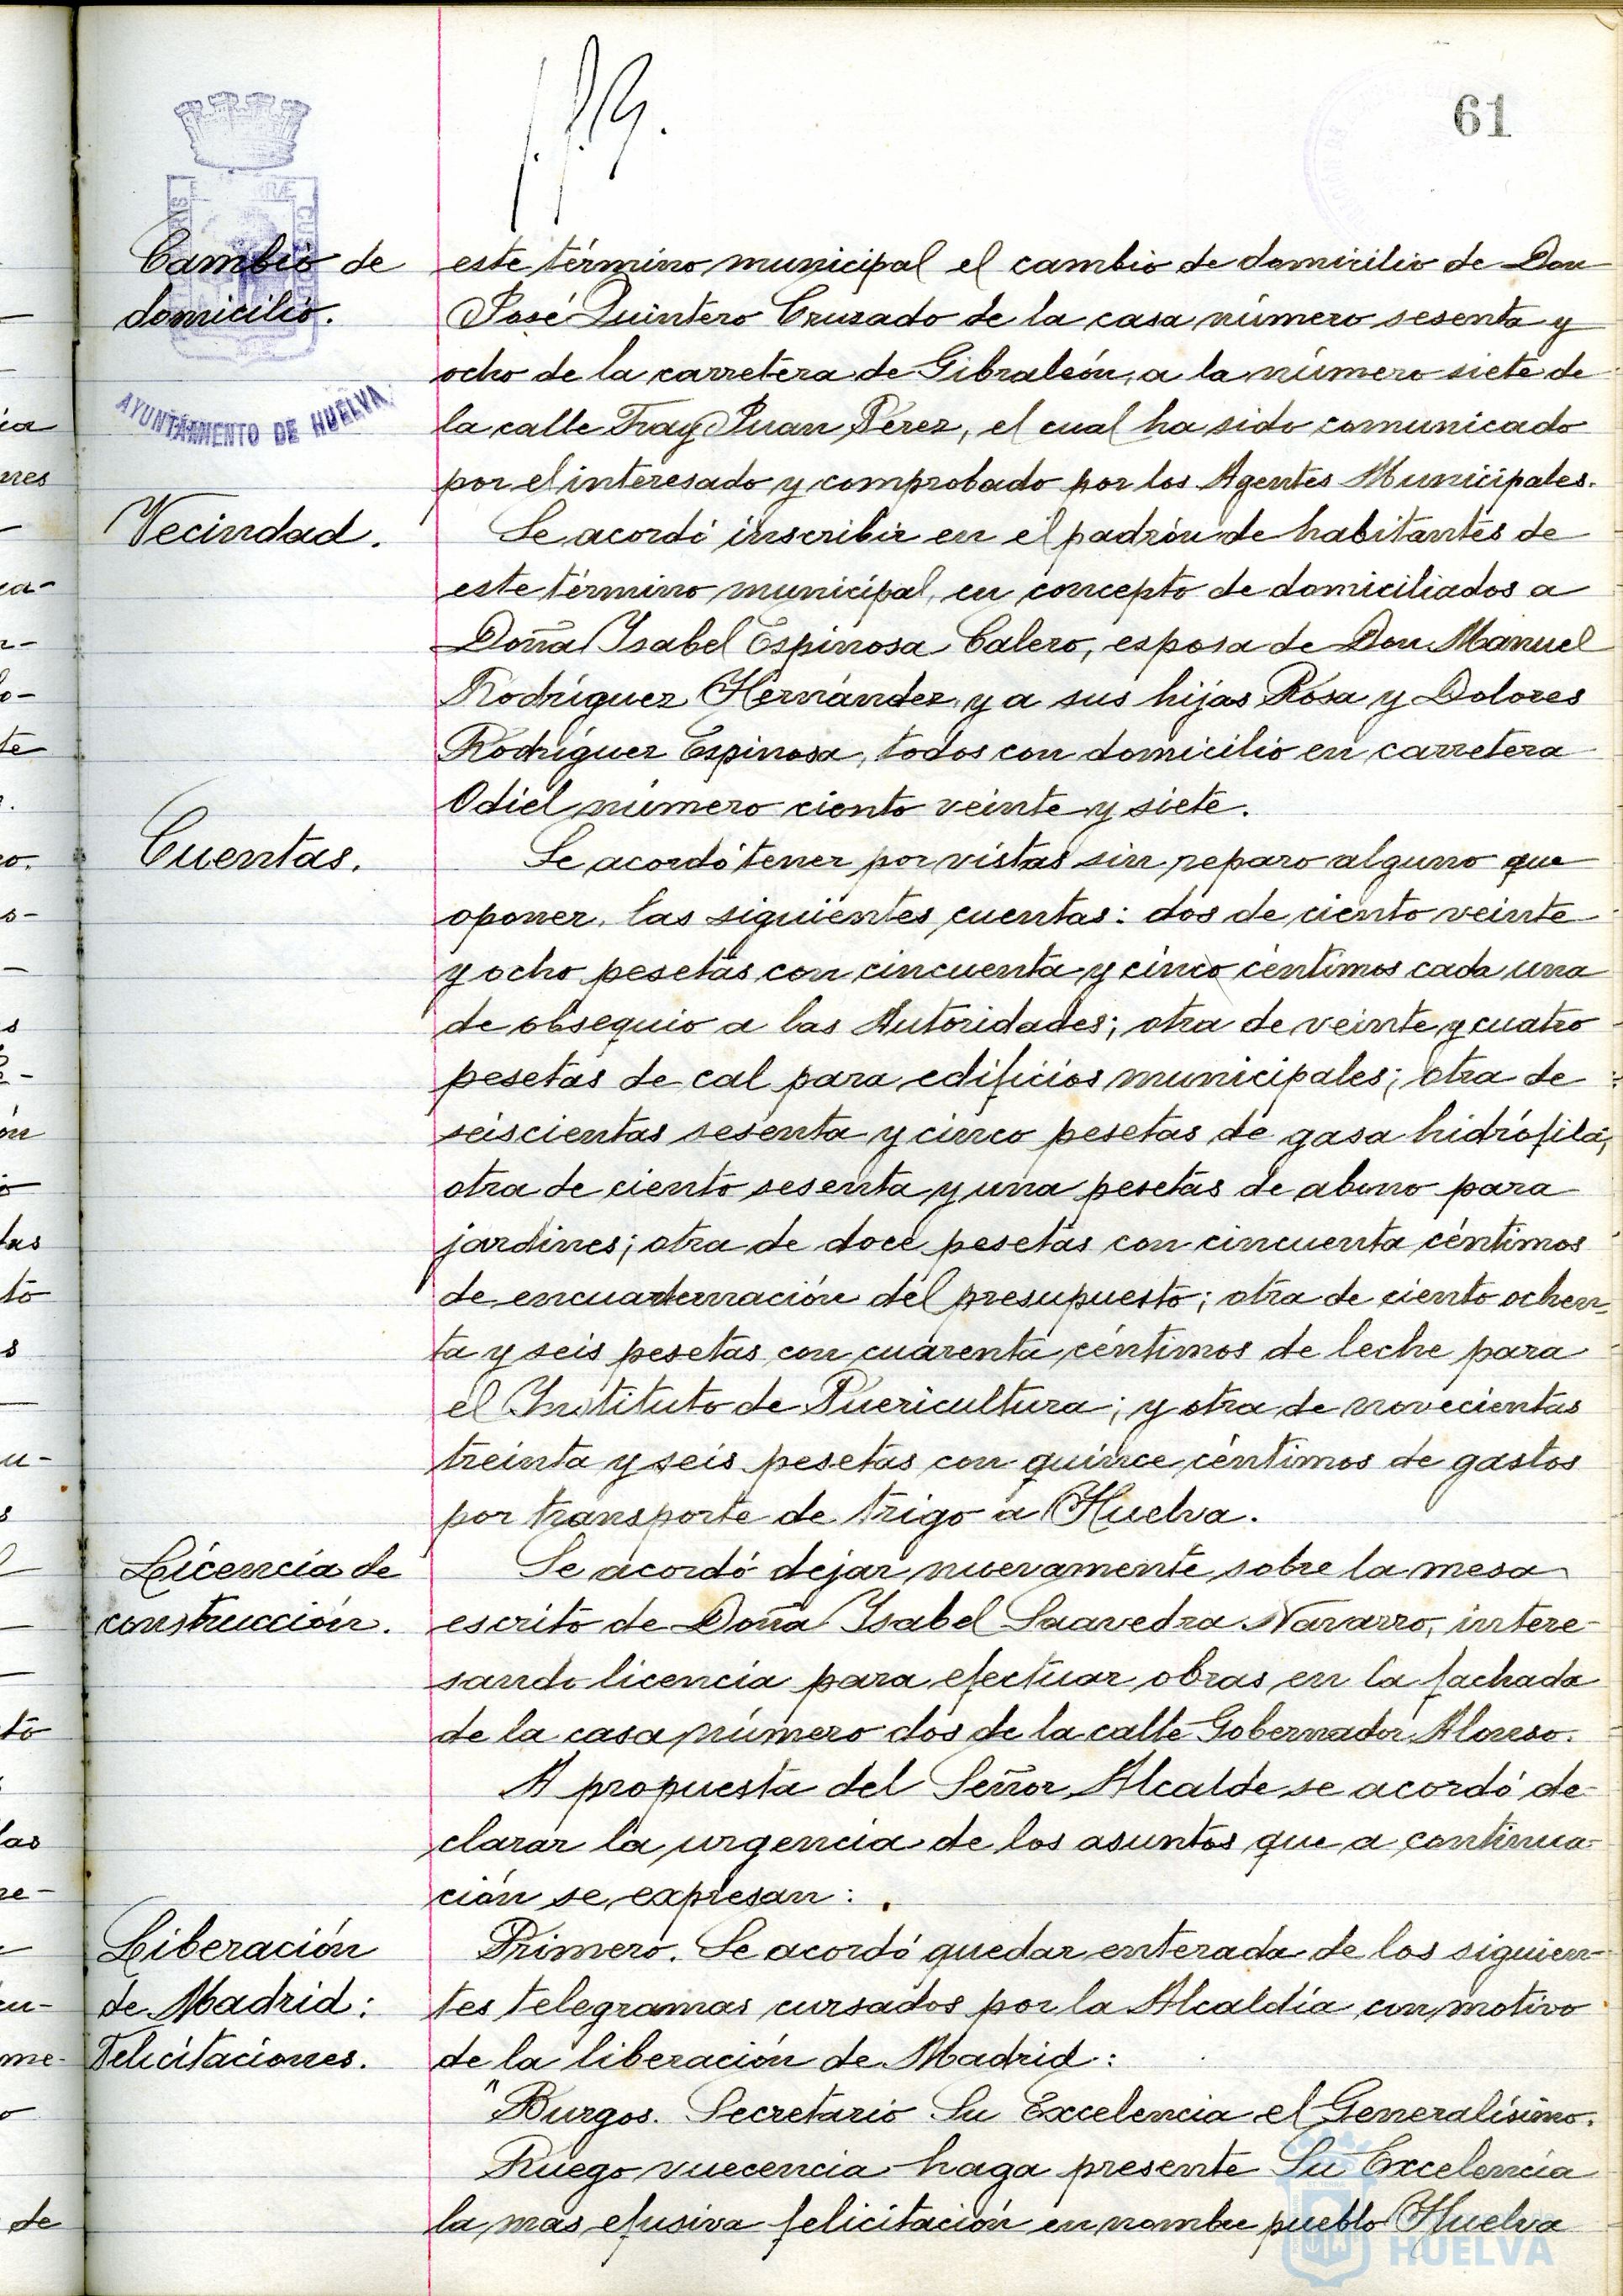 61
Cambio de
domicilio.
AYUNTAMIENTO DE HUELVA
este término municipal el cambio de domicilio de Don
José Quintero Cruzado de la casa número sesenta y
ocho de la carretera de Gibraleón, a la número siete de
la calle Fray Juan Pérez, el cual ha sido comunicado
por el interesado y comprobado por los Agentes Municipales.
Vecindad.
Se acordó inscribir en el padrón de habitantes de
este término municipal, en concepto de domiciliados a
Doña Isabel Espinosa Calero, esposa de Don Manuel
Rodríguez Hernández y a sus hijas Rosa y Dolores
Rodríguez Espinosa, todos con domicilio en carretera
Odiel número ciento veinte y siete.
Cuentas.
Se acordó tener por vistas sin reparo alguno que
oponer, las siguientes cuentas: dos de ciento veinte
y ocho pesetas con cincuenta y cinco céntimos cada una
de obsequio a las Autoridades; otra de veinte y cuatro
pesetas de cal para edificios municipales; otra de
seiscientas sesenta y cinco pesetas de gasa hidrófila;
otra de ciento sesenta y una pesetas de abono para
jardines; otra de doce pesetas con cincuenta céntimos
de encuadernación del presupuesto; otra de ciento ochen-
ta y seis pesetas con cuarenta céntimos de leche para
el Instituto de Puericultura; y otra de novecientas
treinta y seis pesetas con quince céntimos de gastos
por transporte de trigo a Huelva.
Licencia de
construcción.
Se acordó dejar nuevamente sobre la mesa
escrito de Doña Isabel Saavedra Navarro, intere-
sando licencia para efectuar obras en la fachada
de la casa número dos de la calle Gobernador Alonso.
A propuesta del Señor Alcalde se acordó de-
clarar la urgencia de los asuntos que a continua-
ción se expresan:
Liberación
de Madrid:
Felicitaciones.
Primero. Se acordó quedar enterada de los siguien-
tes telegramas cursados por la Alcaldía con motivo
de la liberación de Madrid:
"Burgos. Secretario Su Excelencia el Generalísimo.
Ruego vuecencia haga presente Su Excelencia
la mas efusiva felicitación en nombre pueblo Huelva
HUELVA